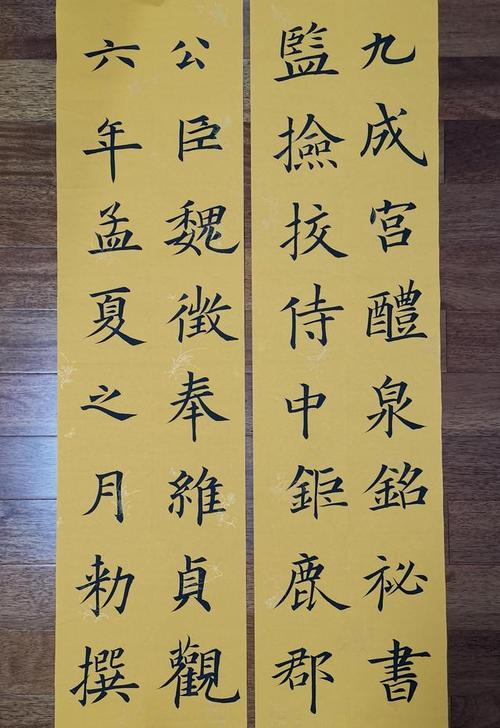 九成宮醴泉銘祕書
監撿挍侍中鉅鹿郡
公臣魏徵奉維貞觀
六年孟夏之月勑撰